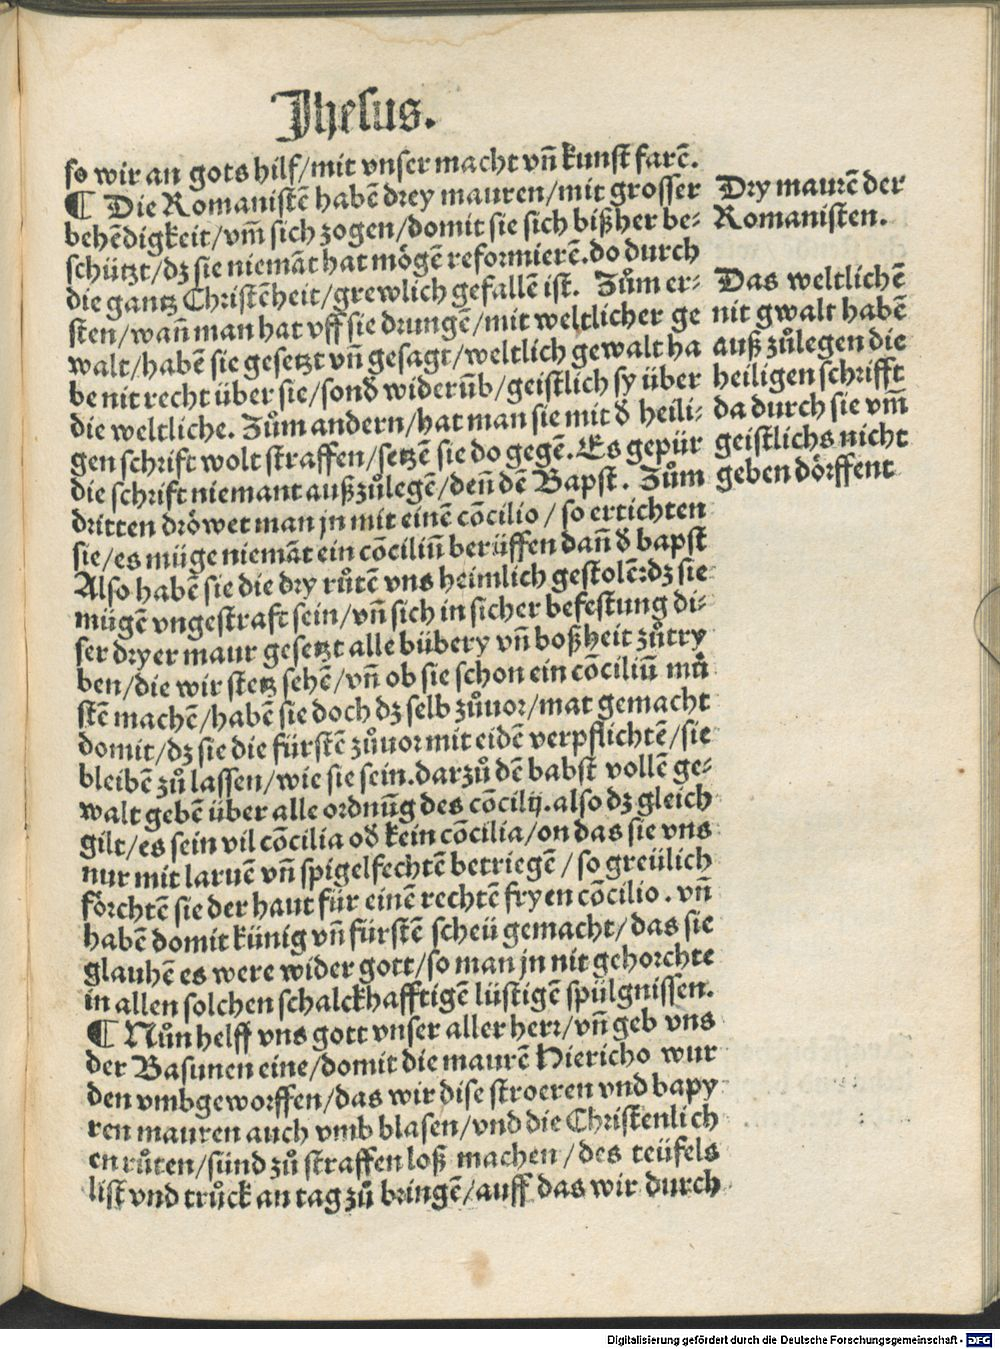 Jhesus.
so wir an gots hilf/mit vnser macht vñ kunst farẽ.
¶ Die Romanistẽ habẽ drey mauren/mit grosser
behẽdigkeit/vm̃ sich zogen/domit sie sich bißher be⸗
schützt/dz sie niemãt hat mögẽ reformierẽ.do durch
die gantz Christẽheit/grewlich gefallẽ ist. Zům er⸗
sten/wañ man hat vff sie drungẽ/mit weltlicher ge
walt/habẽ sie gesetzt vñ gesagt/weltlich gewalt ha
be nit recht über sie/sond̕ widerũb/geistlich sy über
die weltliche. Zům andern/hat man sie mit d̕ heili⸗
gen schrift wolt straffen/setzẽ sie do gegẽ. Es gepür
die schrift niemant außzůlegẽ/deñ dẽ Bapst. Zům
dritten dröwet man jn mit einẽ cõcilio/so ertichten
sie/es müge niemãt ein cõciliũ berüffen dañ d̕ bapst
Also habẽ sie die dry růtẽ vns heimlich gestolẽ:dz sie
mügẽ vngestraft sein/vñ sich in sicher befestung di⸗
ser dryer maur gesetzt alle bübery vñ boßheit zůtry
ben/die wir stetz sehẽ/vñ ob sie schon ein cõciliũ mů
stẽ machẽ/habẽ sie doch dz selb zůuor/mat gemacht
domit/dz sie die fürstẽ zůuor mit eidẽ verpflichtẽ/sie
bleibẽ zů lassen/wie sie sein.darzů dẽ babst vollẽ ge⸗
walt gebẽ über alle ordnũg des cõcilij.also dz gleich
gilt/es sein vil cõcilia od̕ kein cõcilia/on das sie vns
nur mit laruẽ vñ spigelfechtẽ betriegẽ/so greülich
förchtẽ sie der haut für einẽ rechtẽ fryen cõcilio. vñ
habẽ domit künig vñ fürstẽ scheü gemacht/das sie
glaubẽ es were wider gott/so man jn nit gehorchte
in allen solchen schalckhafftigẽ lüstigẽ spülgnissen.
¶ Nůn helff vns gott vnser aller herr/vñ geb vns
der Basunen eine/domit die maurẽ Hiericho wur
den vmbgeworffen/das wir dise stroeren vnd bapy
ren mauren auch vmb blasen/vnd die Christenlich
en růten/sünd zů straffen loß machen/des teüfels
list vnd trůck an tag zů bringẽ/auff das wir durch
Dry maurẽ der
Romanisten.
Das weltlichẽ
nit gwalt habẽ
auß zůlegen die
heiligen schrifft
da durch sie vm̃
geistlichs nicht
geben dörffent
Digitalisierung gefördert durch die Deutsche Forschungsgemeinschaft - DFG